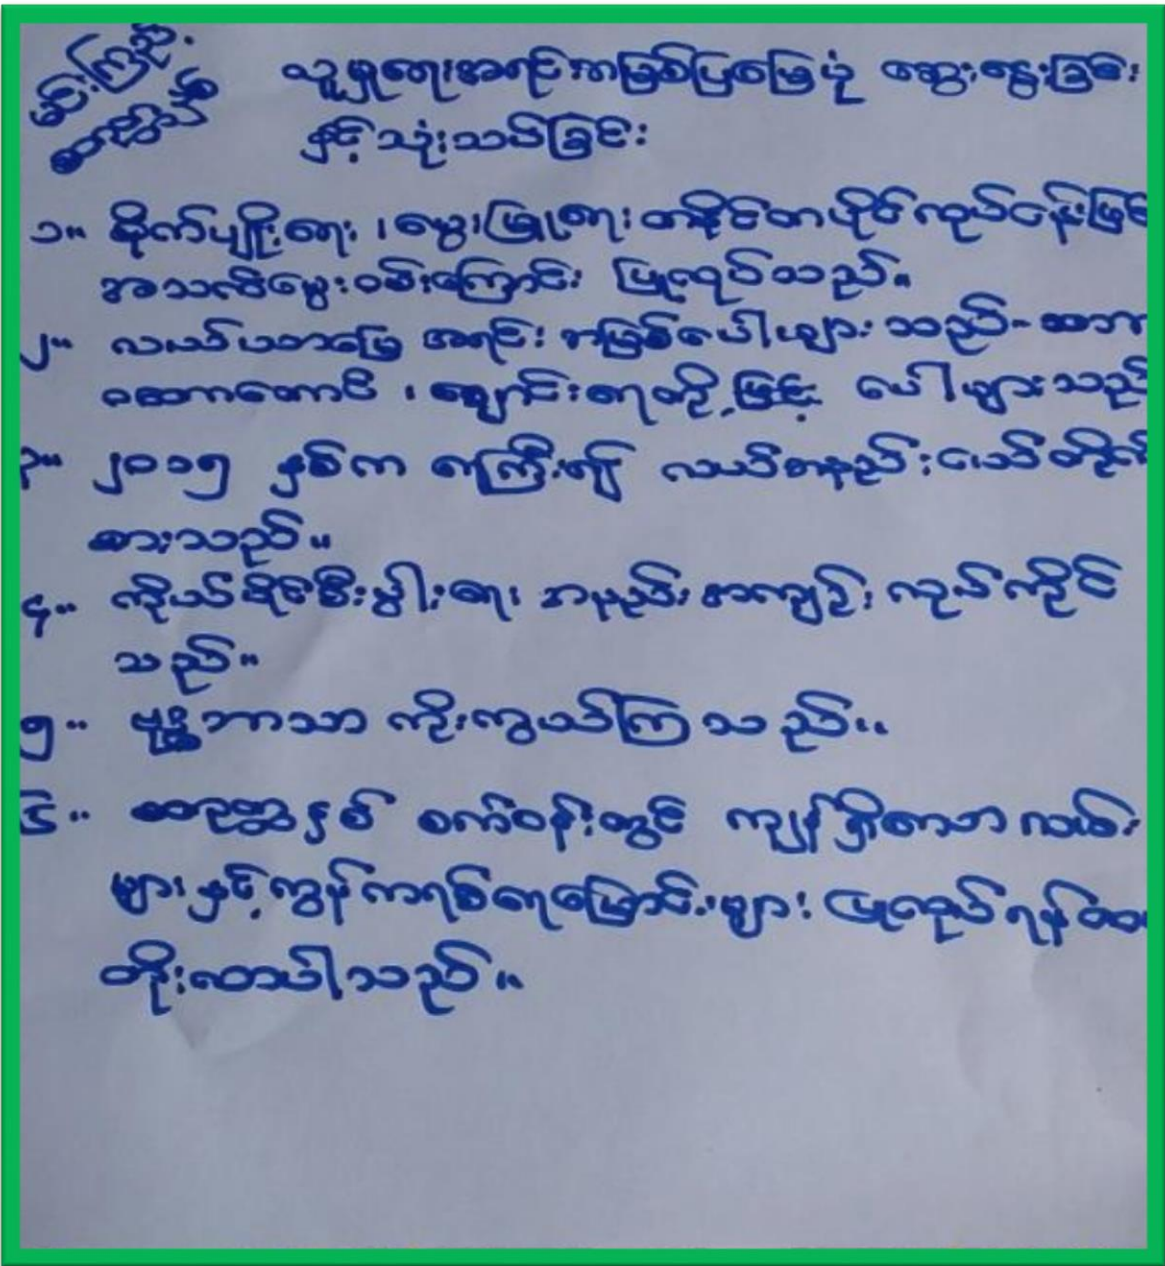 မင်းကြည်
လူမှုရေးအရင်းအမြစ်ပြမြေပုံ ဆွေးနွေးခြင်း
နှင့်သုံးသပ်ခြင်း
၁။ စိုက်ပျိုးရေး၊ မွေးမြူရေး တနိုင်တပိုင်လုပ်ငန်းဖြင့်
အသက်မွေးဝမ်းကြောင်း ပြုလုပ်သည်။
၂။ လယ်ယာမြေ အရင်း အမြစ်ပေါများ သည်-
တောတောင် ၊ ချောင်းရေတို့ဖြင့် ပေါများသည်
၃။ ၂၀၁၅ နှစ်က ရေကြီး၍ လယ်အနည်းငယ်တိုက်
စားသည်။
၄။ ကိုယ်ပိုင်စီးပွါးရေး အနည်းအကျဉ်း လုပ်ကိုင်
သည်။
၅။ ဗုဒ္ဓဘာသာ ကိုးကွယ်ကြသည်။
၆။ နှစ် စက်ဝန်းတွင် ကျန်ရှိသော လမ်း
များနှင့်ကွန်ကရစ်ရေမြောင်းများ ပြုလုပ်ရန်
တိုးလာပါသည်။